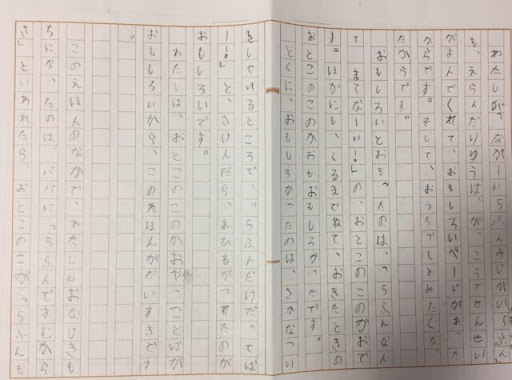 わたしが、ながーいらふんみじかいらふん
も、えらんだりゆうは、がっこうでせんせい
がよんでくれて、おもしろいページがあっ
たからです。そして、おうちでもよみたくな
ったからです。
おもしろいとおもったのは、「らふんなん
て　まてなーい!」の、おとこのこのかおで
す。ほかにも、くるまでねて、おきたときの
おとこのこのかおもおもしろかったです。
とくに、おもしろかったのは、さかなつい
をしているところで、「らふんだけだってば
ー!」と、さけんだら、あひるがつれたのが
おもしろいです。
わたしは、おとこのこのかおや、ことばが
おもしろいから、このえほんがだいすきです
。
このえほんのなかで、わたしとおなじきも
ちになったのは、パパに「らふんですむから
さ」といわれたら、おとこのこが「らふんも